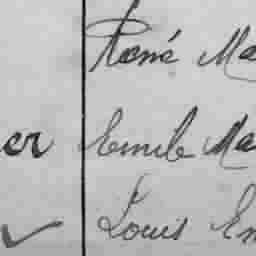 René Ma
er Emile Ma
Louis Em